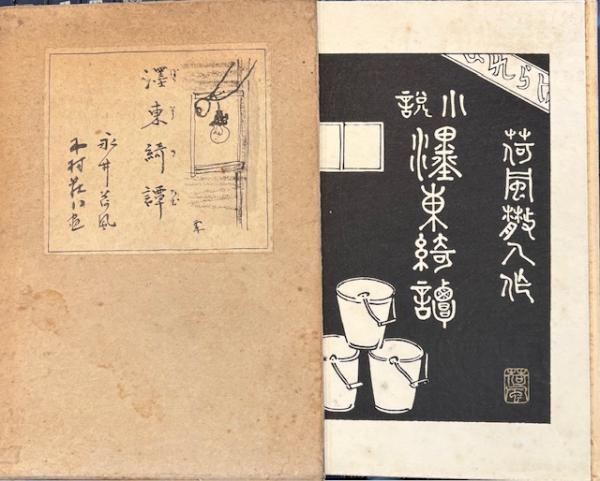 濹東綺譚
永井荷風
木村荘八画
けられま
荷風散人作
小説
濹東綺譚
荷風